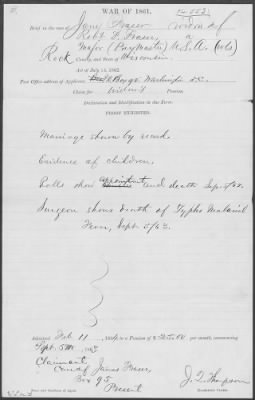 WAR OF 1861.
Brief in the case of Jane Fraser widow of
Robt L Fraser, a
Major (Pay Master) U.S.A. (vols)
Rock Wisconsin.
Act of July 14, 1862.
Post Office address of Applicant, Washington D.C.
Claim for Widow's Pension.
Declaration and Identification in due Form.
PROOF EXHIBITED.
Marriage shown by record.
Evidence of children.
Rolls show appointment and death Sep. 5/63.
Surgeon shows death of Typho Malarial
Fever, Sept. 5/63.
Admitted Feb 11, 1864 to a Pension of $25.00 per month, commencing
Sept. 5th, 1863
Claimant
Care of James Fraser,
Box 95
Present
J. Q. Thompson